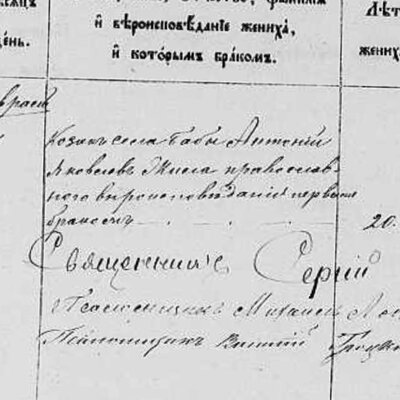 и вѣроисповѣданіе жениха,
и которымъ бракомъ.
день.
жениха
Козакъ села Бабы Антоній
Яковлевъ православ
наго вѣроисповѣданія первымъ
бракомъ
20.
Священникъ Сергій
Псаломщикъ Михаилъ
Псаломщикъ